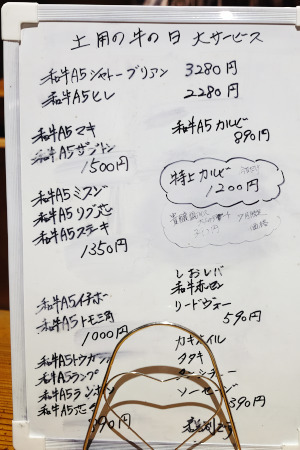 土用の牛の日 大サービス
和牛A5シャトーブリアン 3280円
和牛A5ヒレ 2280円
和牛A5マキ
和牛A5ザブトン
1500円
和牛A5カルビー
890円
特上カルビー
1200円
和牛A5ミスジ
和牛A5リブ芯
和牛A5ステーキ
1350円
和牛A5イチボ
和牛A5トモ三角
1000円
しおレバ
和牛赤セン
リードヴォー
590円
和牛A5トウガラシ
和牛A5ランプ
和牛A5
和牛A5
890円
カキオイル
タタキ
ソーセージ
390円